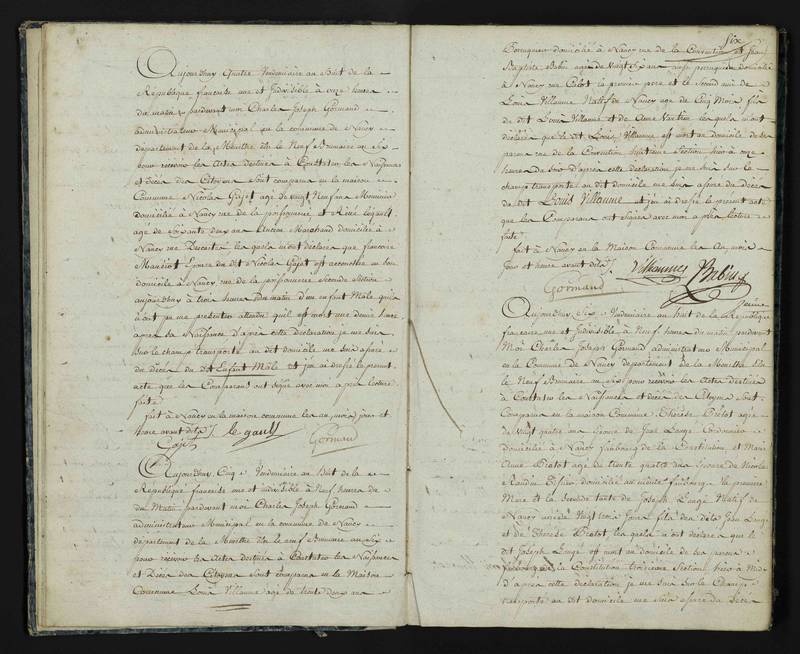 Aujourdhuy quatre Vendemiaire an huit de la
République française une et indivisible à onze heures
du matin pardevant moi Charles Joseph Gormand
administrateur Municipal en la commune de Nancy
departement de la Meurthe Elu le neuf Brumaire an six
pour recevoir les actes destinés à Constater les Naissances
et décès des Citoyens Sont comparus en la maison
Commune Nicolas Gajot agé de vingt neuf ans
domicilié à Nancy rue de la poissonnerie et Réné Legault
agé de soixante douze ans Ancien Marchand domicilié à
Nancy rue les quels m'ont déclaré que françoise
Epouse du dit Nicolas Gajot est accouchée en son
domicile à Nancy rue de la poissonnerie Seconde Section
aujourdhuy à trois heures du matin d'un enfant Male qu'il
n'ont pu me presenter attendu qu'il est mort une demie heure
après sa Naissance D'après cette déclaration je me suis
sur le champ transporté au dit domicile me suis assuré
du décès du dit Enfant Male et j'ai dressé le present
acte que les Comparans ont signé avec moi après lecture
faite
fait à Nancy en la maison commune les an, mois, jour et
heure avant dits
le gault
Gajot Gormand
Aujourdhuy Cinq Vendemiaire an huit de la
République française une et indivisible à Neuf heures
du Matin pardevant moi Charles Joseph Gormand
administrateur Municipal en la commune de Nancy
departement de la Meurthe Elu le neuf Brumaire an six
pour recevoir les actes destinés à Constater les Naissances
et Décès des Citoyens Sont comparus en la Maison
Commune Louis Villaume agé de trente deux ans
Six
Perruquier domicilié à Nancy rue de la Convention et Jean
Baptiste Babin agé de vingt ans aussi perruquier domicilié
à Nancy rue Callot le premier pere et le second ami de
Louis Villaume Natif de Nancy agé de Cinq Mois fils
du dit Louis Villaume et de Anne les quels m'ont
déclaré que le dit Louis Villaume est mort au domicile de ses
parens rue de la Convention Septieme Section hier à onze
heures du soir D'après cette déclaration je me suis sur le
champ transporté au dit domicile me suis assuré du décès
du dit Louis Villaume et j'ai dressé le présent acte
que les Comparans ont signé avec moi après lecture
faite
fait à Nancy en la Maison Commune les an mois
jour et heure avant dits
Villaumes Babin
Gormand
Aujourdhuy Six Vendemiaire an huit de la République
française une et indivisible à Neuf heures du matin pardevant
Moi Charles Joseph Gormand administrateur Municipal
en la Commune de Nancy departement de la Meurthe Elu
le Neuf Brumaire an six pour recevoir les Actes destinés
à Constater les Naissances et décès des Citoyens Sont
Comparus en la maison Commune Thérèse Bretot agée
de vingt quatre ans Epouse de Jean Langé Cordonnier
domiciliée à Nancy faubourg de la Constitution et Marie
Anne Bretot agée de trente quatre ans Epouse de Nicolas
domicilié au même faubourg la premiere
Mere et la seconde tante de Joseph Langé Natif de
Nancy agé de Vingt trois Jours fils du dit Jean Langé
et de Thérèse Bretot les quels m'ont déclaré que le
dit Joseph Langé est mort au domicile de ses parens
faubourg de la Constitution troisieme Section hier à Midi
D'après cette déclaration je me suis sur le Champ
transporté au dit domicile me suis assuré du décès